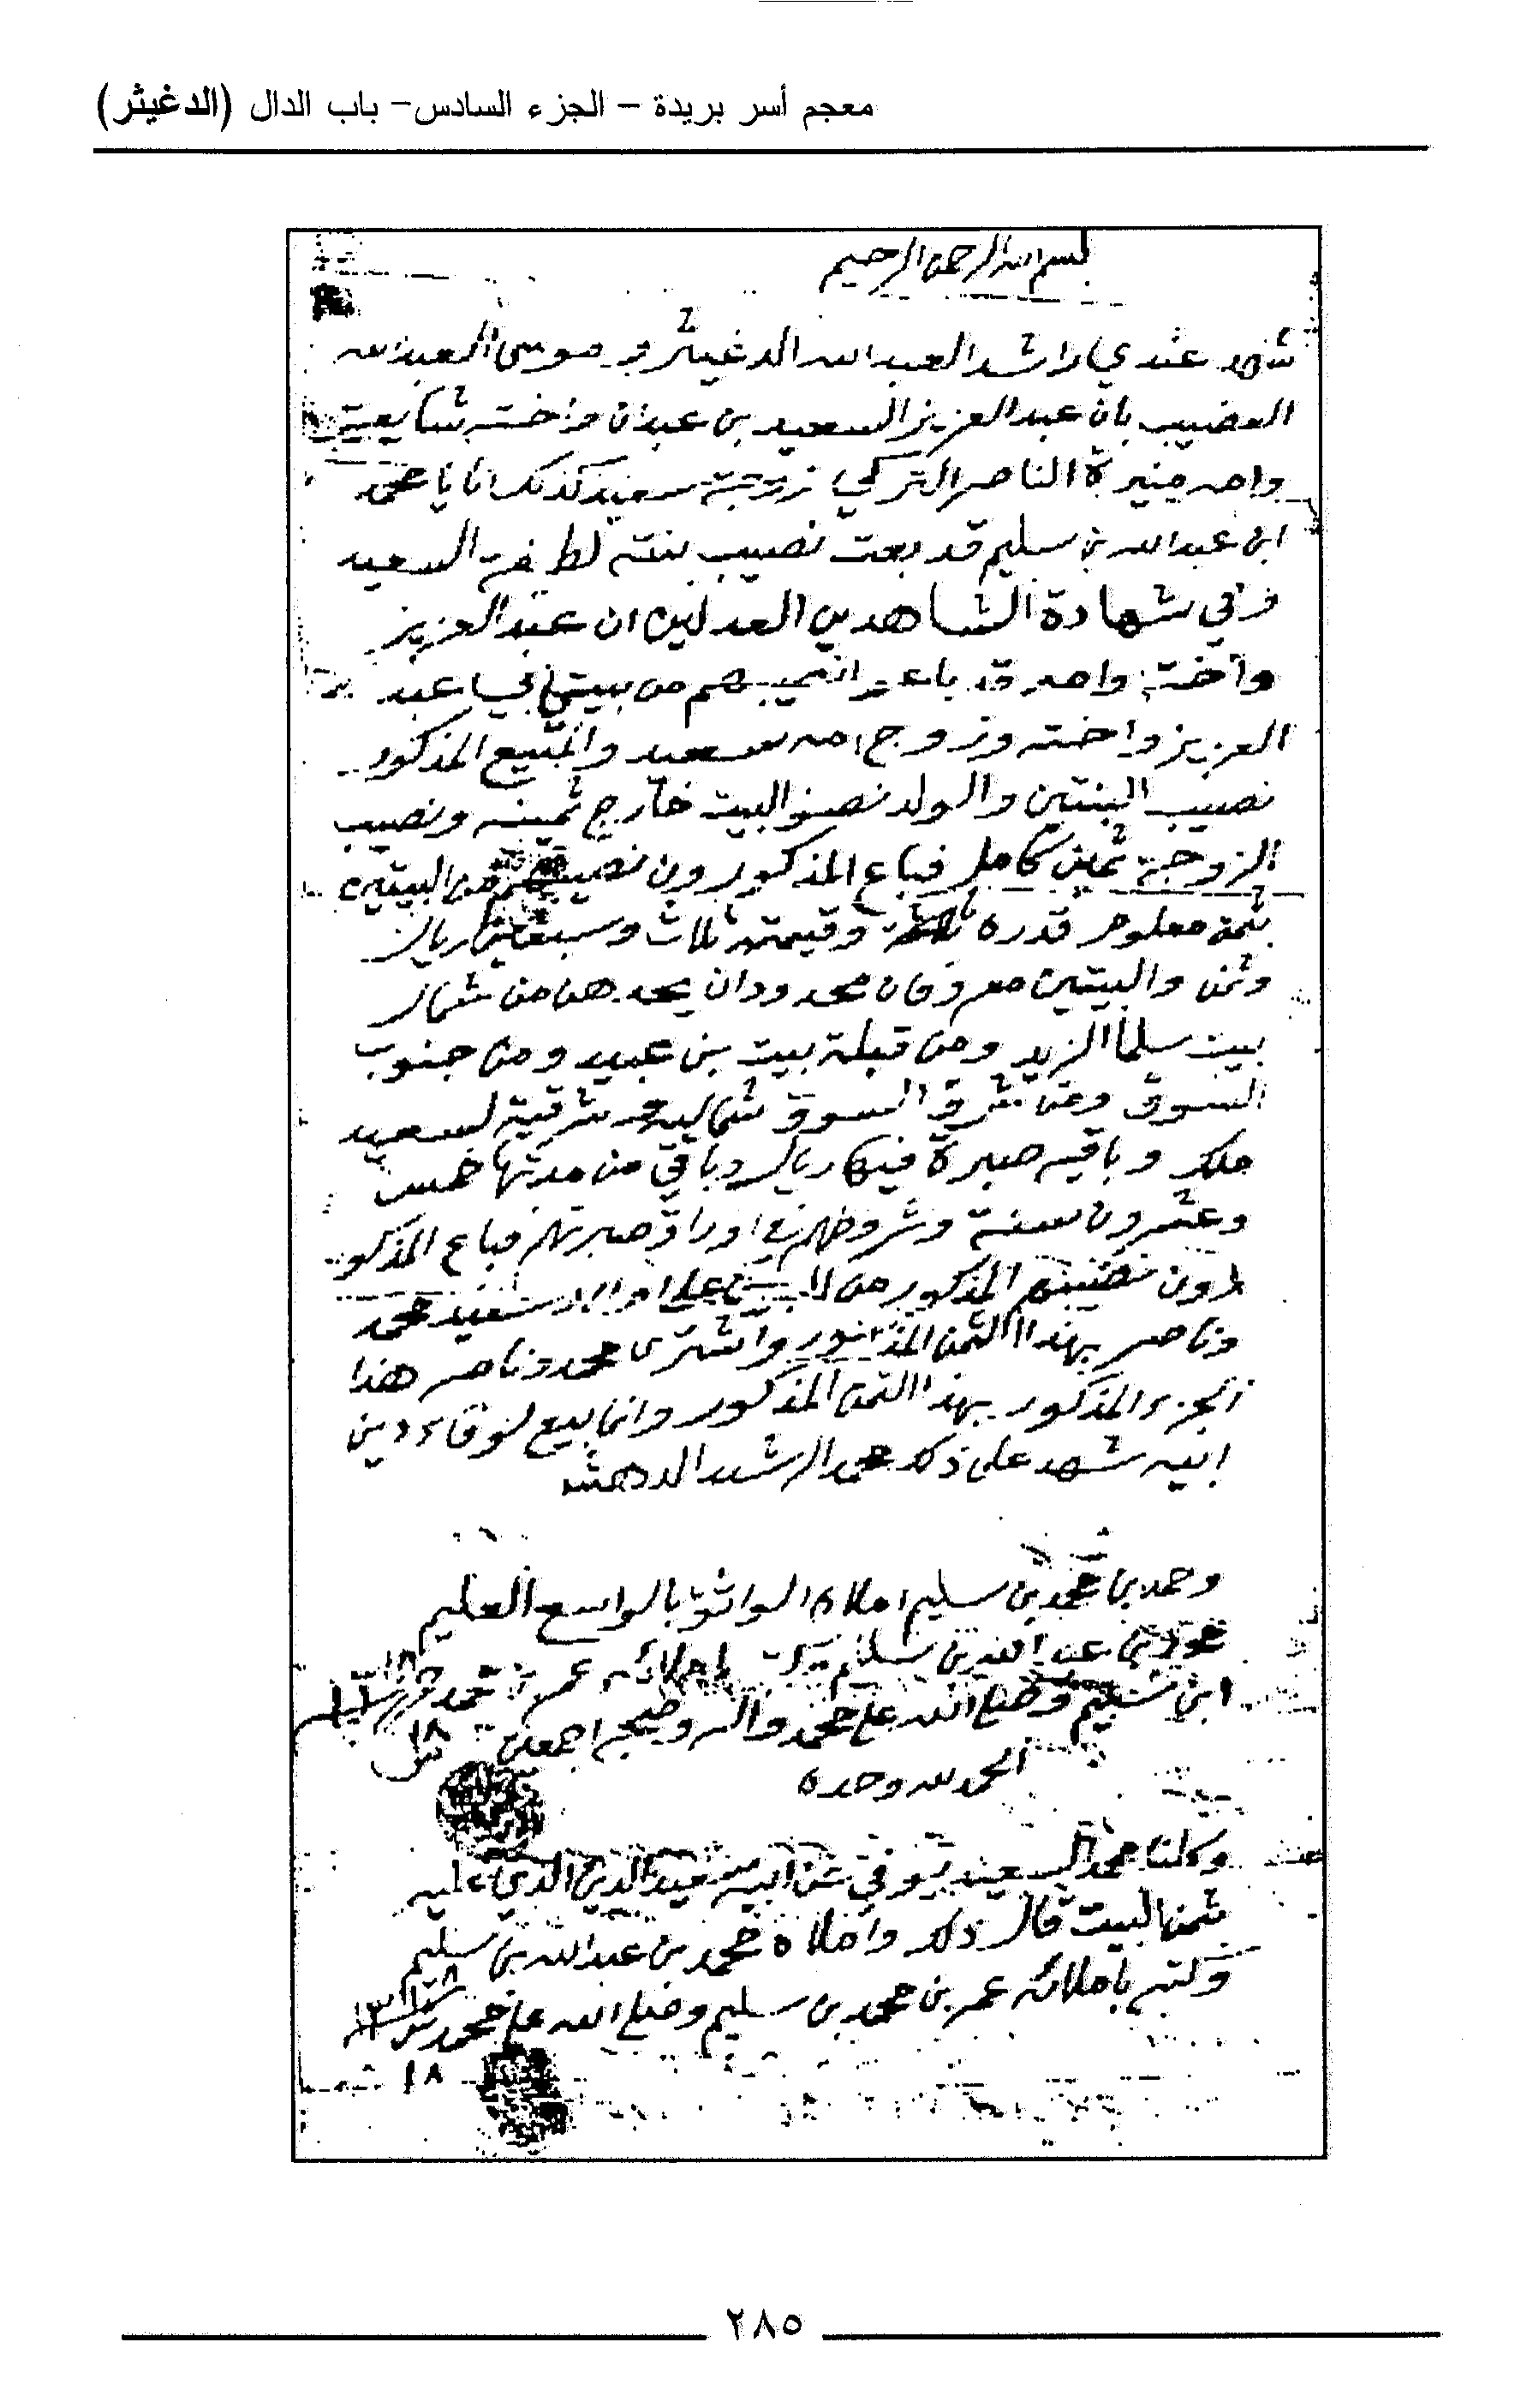 معجم أسر بريدة – الجزء السادس – باب الدال (الدغيثر)
بسم الله الرحمن الرحيم
شهد عندي راشد العبدالله الدغيثر وموسى العبدالله
العضيب بان عبدالعزيز السعيد بن عبدان واخته شايعة
وامه منيرة الناصر التركي زوجة سعيد كذلك انا يا محمد
ابن عبدالله بن سليم قد بعت نصيب بنته السعيد
في شهادة الشاهدين العدلين ان عبدالعزيز
واخته وامه قد باعو نصيبهم من بيتي عبد
العزيز واخته وزوج امه سعيد والمبيع المذكور
نصيب البنتين والولد نصف البيت خارج ثمينه ونصيب
الزوجة ثمين كامل فباع المذكورون نصيبهم من البيتين
بثمن معلوم قدره وقيمته ثلاث وسبعين ريال
وثمن والبيتين معروفان محدودان يحدهن من شمال
بيت سلما الزيد ومن قبلة بيت بن عبيد ومن جنوب
السوق ومن شرق السوق شماليه شرقية لسعيد
ملك وباقيه صبرة فيها ريال وباقي من مدتها خمس
وعشرون سنة وشروطهن في اوراق صبرتهن فباع المذكو
رون نصيبهم المذكور من البيتين على اولاد سعيد محمد
وناصر بهذا الثمن المذكور واشترى محمد وناصر هذا
الجزء المذكور بهذا الثمن المذكور وانما بيع لوفاء دين
ابيه شهد على ذلك محمد الرشيد الدهش
وحمد بن محمد بن سليم املاه الواثق بالواسع العليم
محمد بن عبدالله بن سليم باملائه عمر بن محمد
ابن سليم وصلى الله على محمد واله وصحبه اجمعين
١٨
الحمد لله وحده
وكلنا محمد السعيد يتوفى عن ابيه سعيد الدين الذي عليه
ثمن البيت قال ذلك واملاه محمد بن عبدالله بن سليم
وكتبه باملائه عمر بن محمد بن سليم وصلى الله على محمد
١٨
٢٨٥